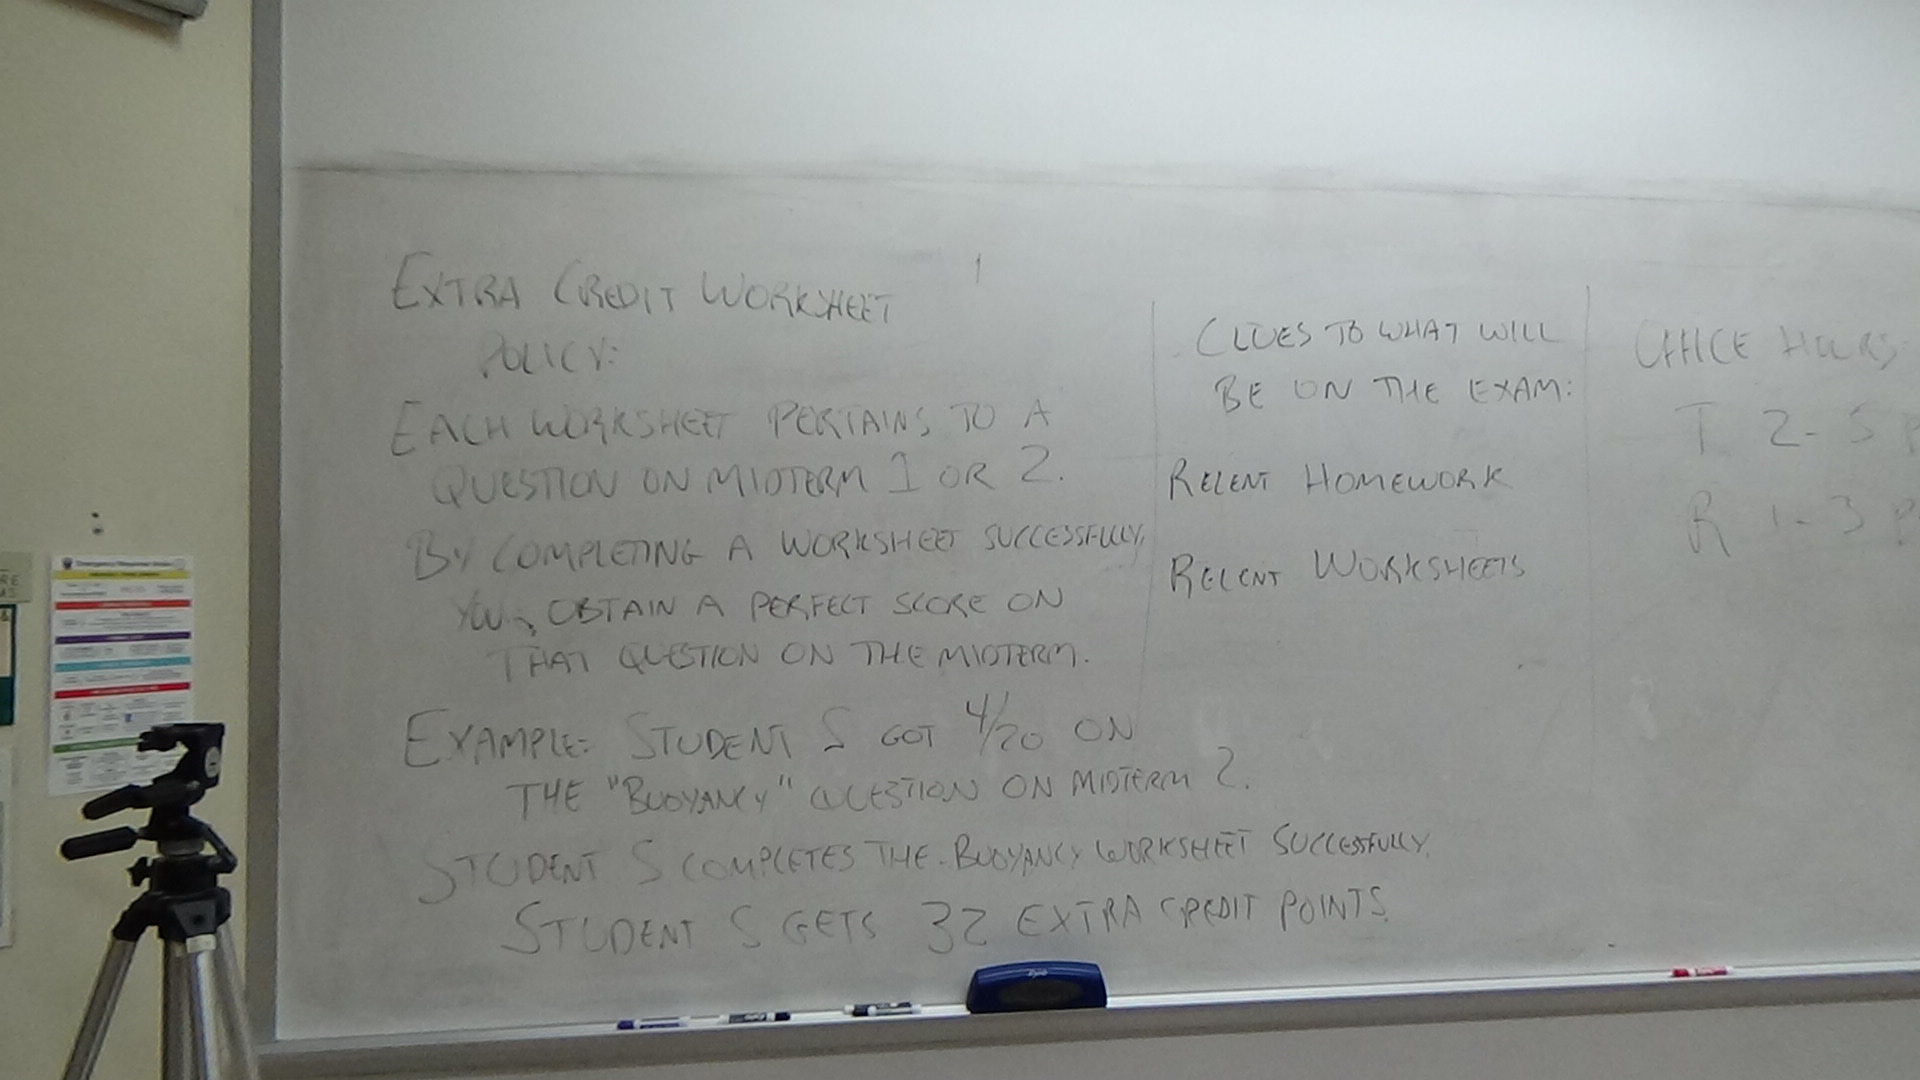 EXTRA CREDIT WORKSHEET
POLICY:
EACH WORKSHEET PERTAINS TO A
QUESTION ON MIDTERM 1 OR 2.
BY COMPLETING A WORKSHEET SUCCESSFULLY,
YOU OBTAIN A PERFECT SCORE ON
THAT QUESTION ON THE MIDTERM.
EXAMPLE: STUDENT S GOT 4/20 ON
THE "BUOYANCY" QUESTION ON MIDTERM 2.
STUDENT S COMPLETES THE BUOYANCY WORKSHEET SUCCESSFULLY.
STUDENT S GETS 32 EXTRA CREDIT POINTS.
CLUES TO WHAT WILL
BE ON THE EXAM:
RECENT HOMEWORK
RECENT WORKSHEETS
OFFICE HOURS:
T 2-5 P
R 1-3 P